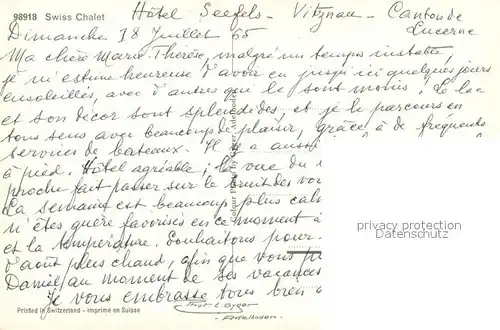 98918 Swiss Chalet
Hôtel Seefels - Vitznau - Canton de
Lucerne
Dimanche 18 Juillet 65
Ma chère Marie-Thérèse, malgré un temps instable,
je m'estime heureuse d'avoir eu jusqu'ici quelques jours
ensoleillés, avec d'autres qui le sont moins. Le lac
et son décor sont splendides, et je le parcours en
tous sens avec beaucoup de plaisir, grâce à de fréquents
services de bateaux. Il y a aussi
à pied. Hôtel agréable, la vue du
proche fait passer sur le bruit des voi
La semaine est beaucoup plus calm
n'êtes guère favorisés en ce moment
et la température. Souhaitons pour
d'août plus chaud, afin que vous
Daniel au moment de ses vacances
Je vous embrasse tous bien
Colour Photo by Gyger, Adelboden
privacy protection
Datenschutz
Printed in Switzerland - Imprimé en Suisse
Phot. E. Gyger
- Adelboden -